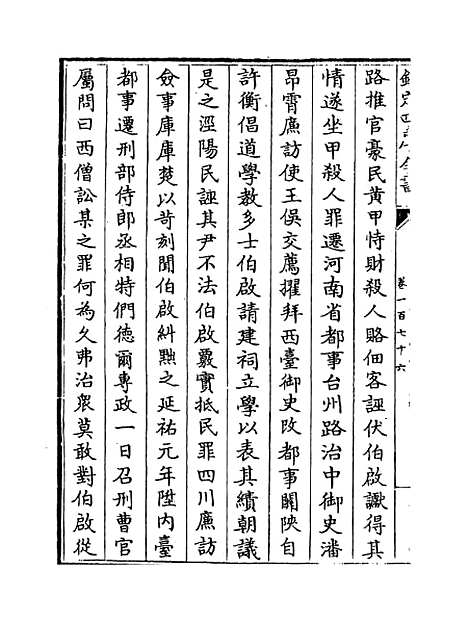 欽定四庫全書
卷一百七十六
路推官豪民黄甲恃財殺人賂佃客誣伏伯啟讞得其
情遂坐甲殺人罪遷河南省都事台州路治中御史潘
昂霄廉訪使王俁交薦擢拜西臺御史改都事關陜自
許衡倡道學教多士伯啟請建祠立學以表其績朝議
是之涇陽民誣其尹不法伯啟覈實抵民罪四川廉訪
僉事庫庫楚以苛刻聞伯啟糾黜之延祐元年陞内臺
都事遷刑部侍郎丞相特們德爾專政一日召刑曹官
屬問曰西僧訟某之罪何為久弗治衆莫敢對伯啟從